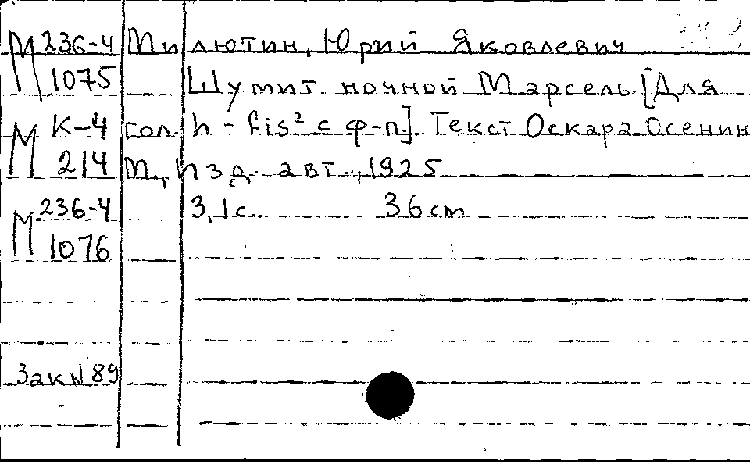 М 236-4 Милютин, Юрий Яковлевич
1075 Шумит ночной Марсель. [Для
М К-4 гол. h - fis² с ф-п]. Текст Оскара Осенин
214 М., Изд. авт., 1925
М 236-4 3,1 с. 36 cm
1076
Зак №189